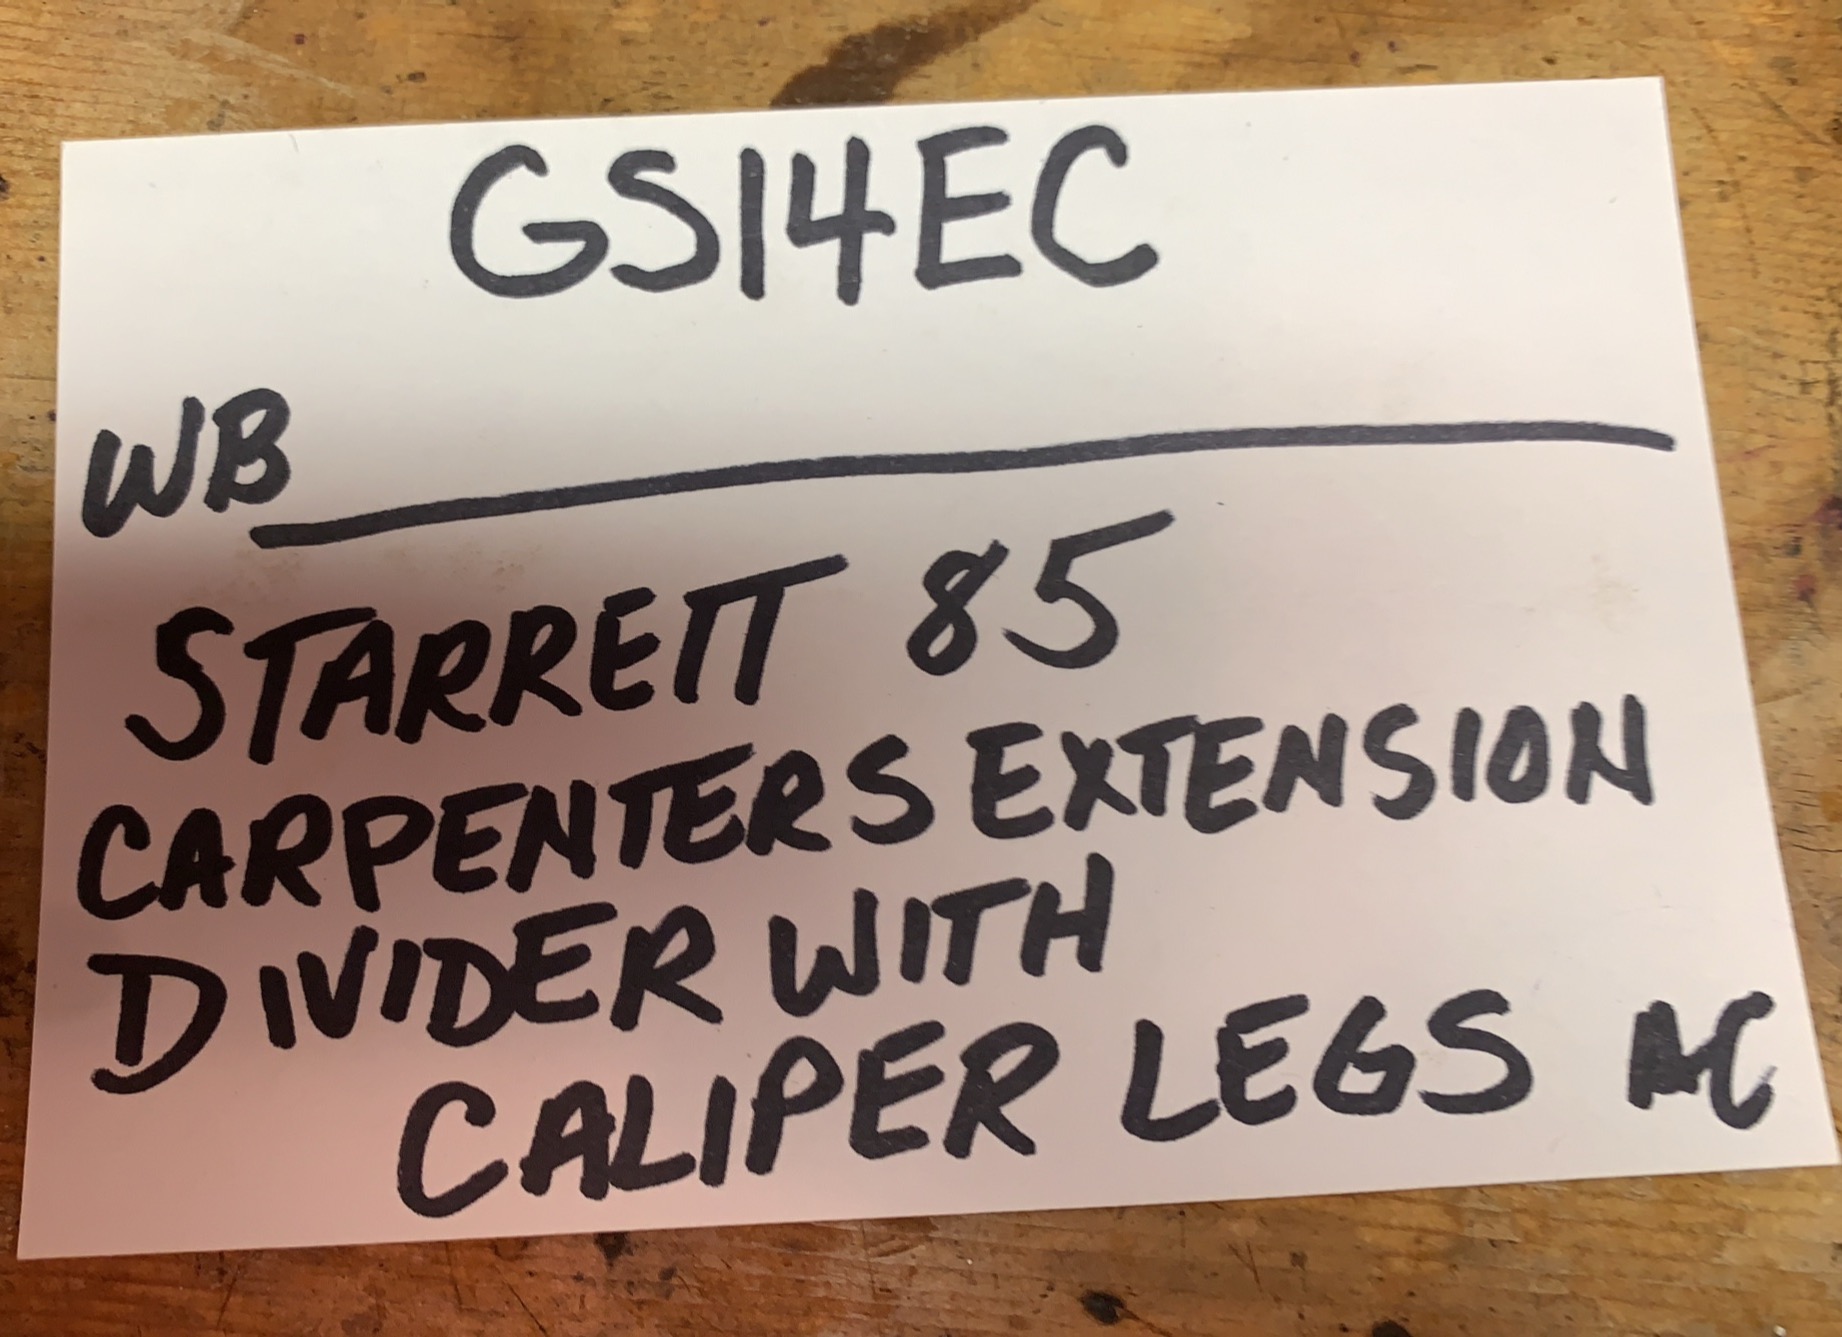 GS14EC
WB
STARRETT 85
CARPENTERS EXTENSION
DIVIDER WITH
CALIPER LEGS AC